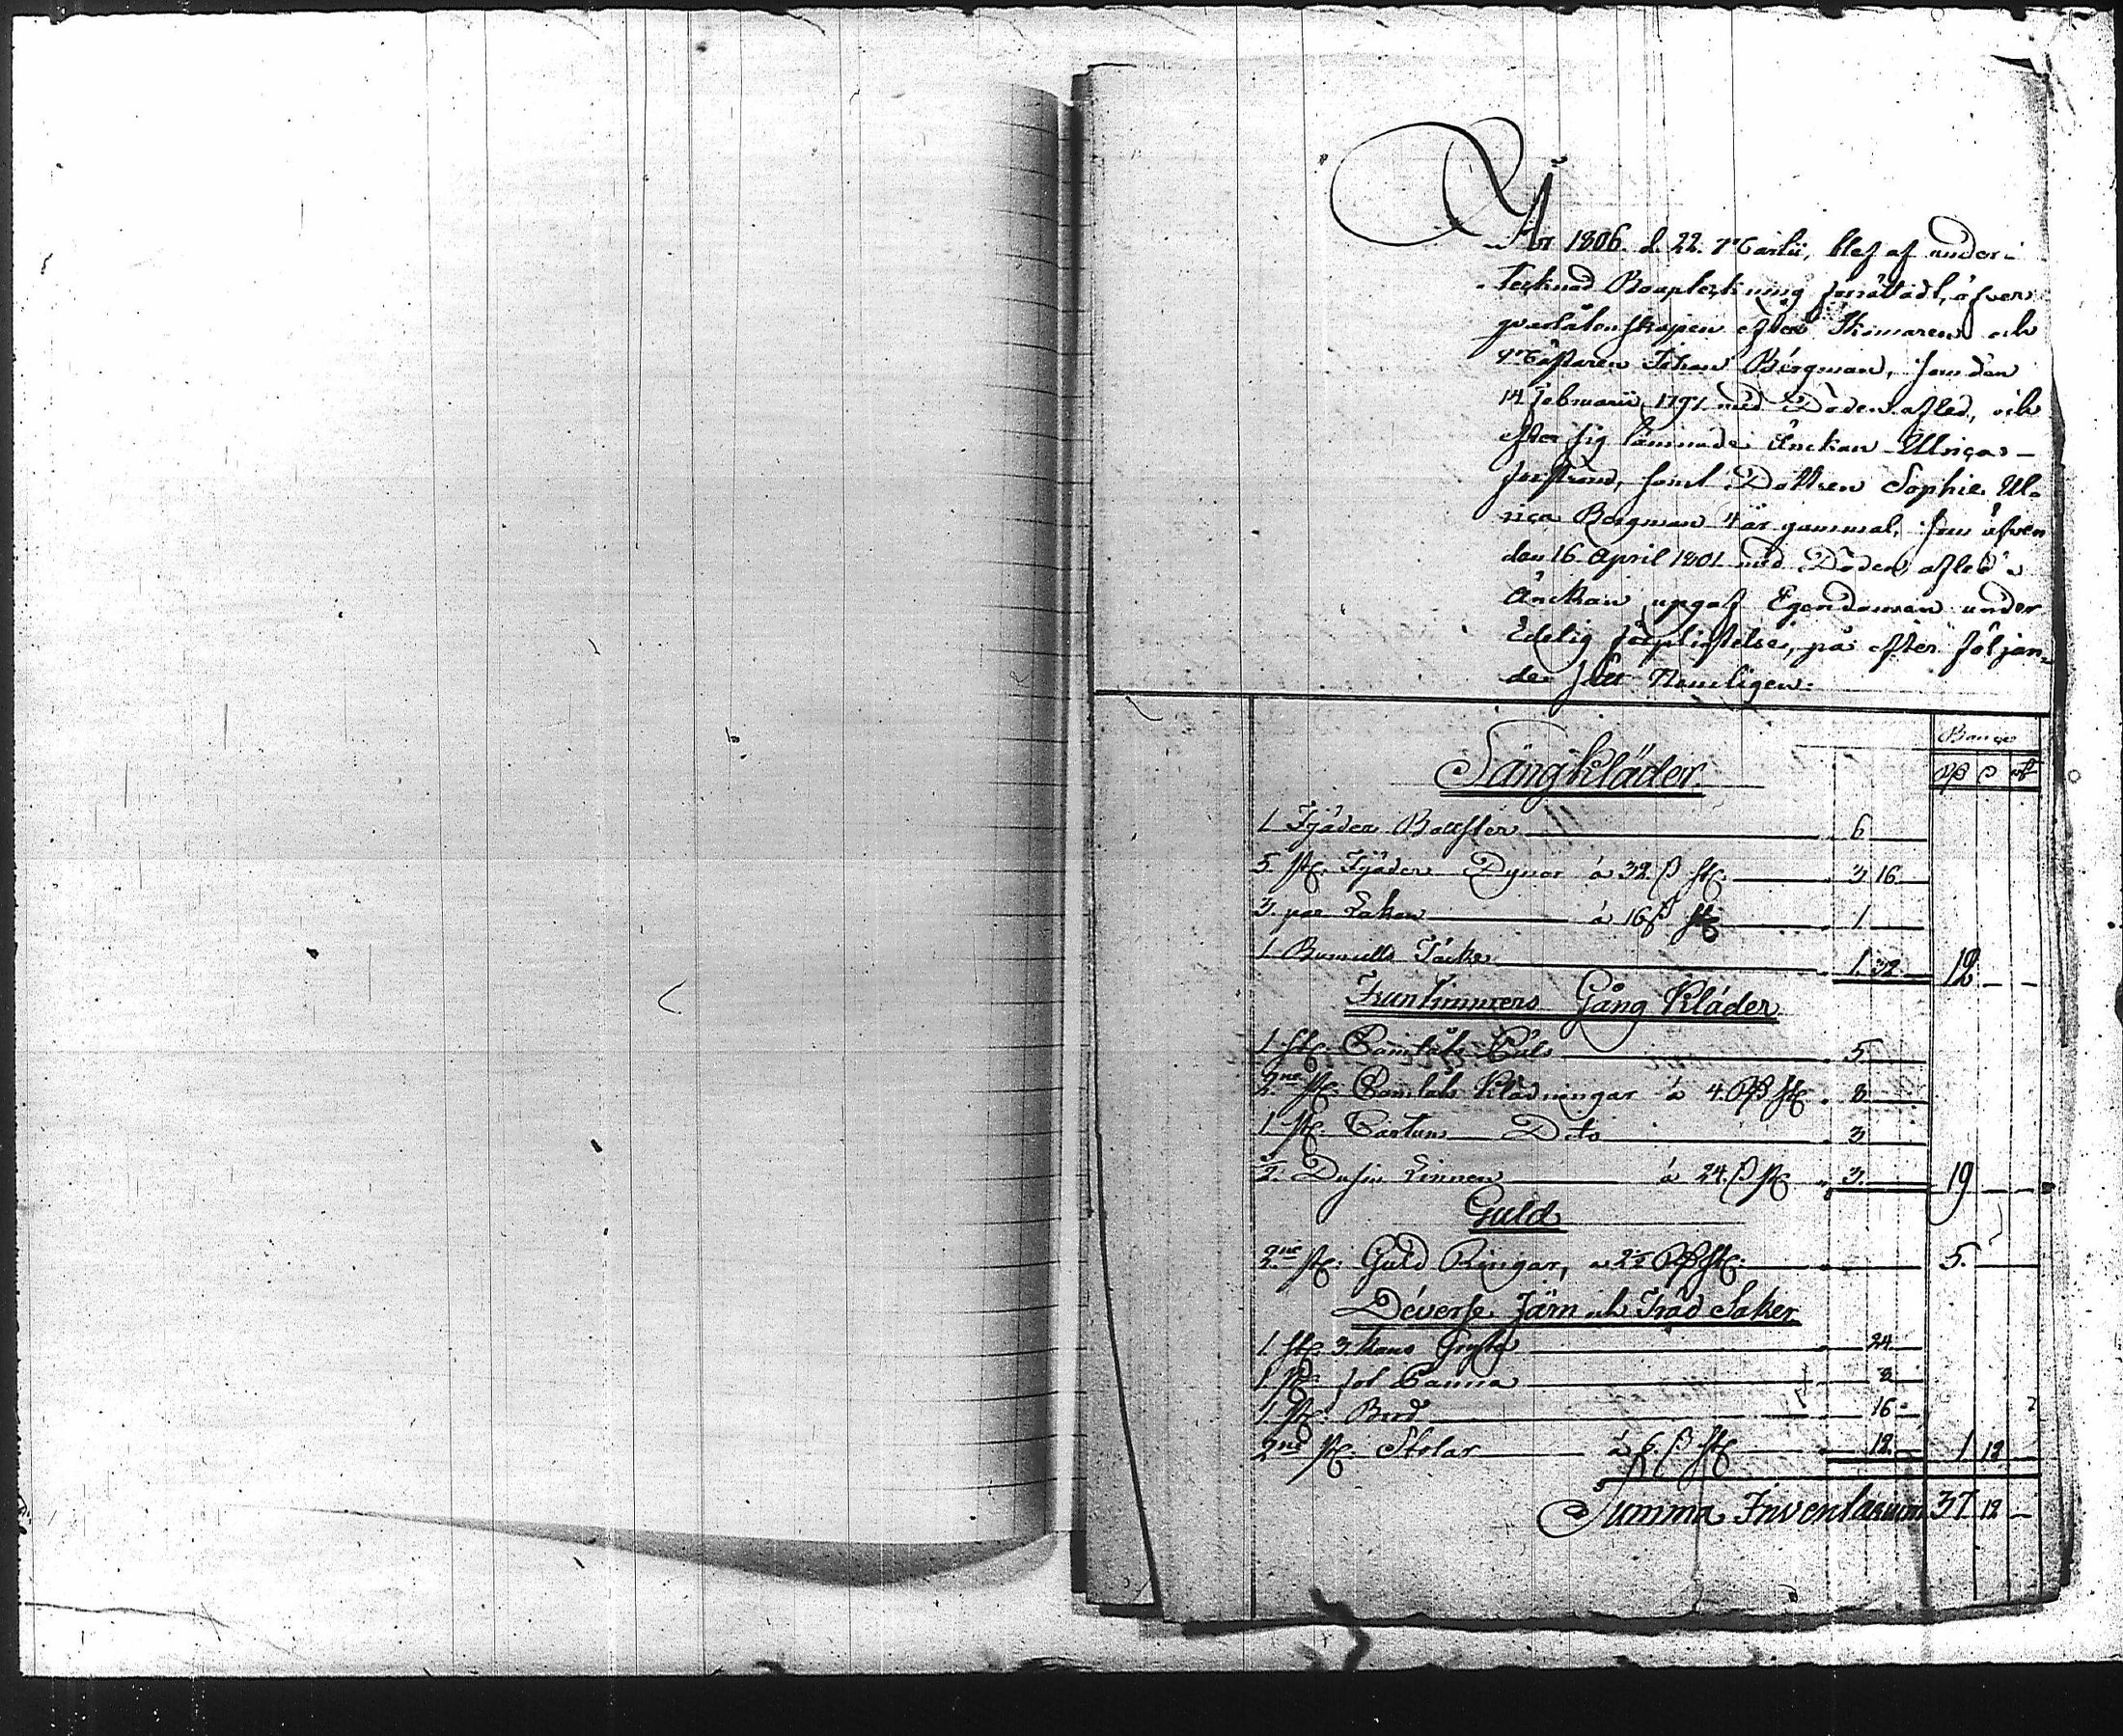 År 1806. d. 22. Martii, blef af under-
tecknad Bouptekning förrättad, öfver
qvarlåtenskapen efter Skomaren och
Mästaren Johan Bergman, som den
14 Februarii 1791 med Döden afled, och
efter sig lämnade Enckan Ulrica
samt Dottren Sophie Ul-
rica Bergman 4 år gammal, som äfven
den 16 April 1801 med Döden afled
Änckan upgaf Egendomen under
Edelig förplicktelse, på efter följan-
de sätt Nemligen:
Banco
Rß ß rst
Sängkläder
1 Fjäder Bollster 6
5. st. Fjäder Dynor á 32 ß st. 3 16
3. par Lakan á 16 ß st 1
1 Täcke 1. 32 12 - -
Fruntimmers Gång Kläder
1 st. Camlåts 5
2ne st. Camlots Klädningar á 4. Rß st. 8
1 st. Cartuns Dito 3
1/2 Dusin Linnen á 24. ß st 3. 19 - -
Guld
2ne st. Guld Ringar, a 2½ Rß st. 5. - -
Diverse Järn och Träd Saker
1 st. 3. kans Gryta 24
1 st. Panna 8
1 st. Bord 16
2ne st. Stolar á 6 ß st 12 1 12 -
Summa Inventarium 37 12 -